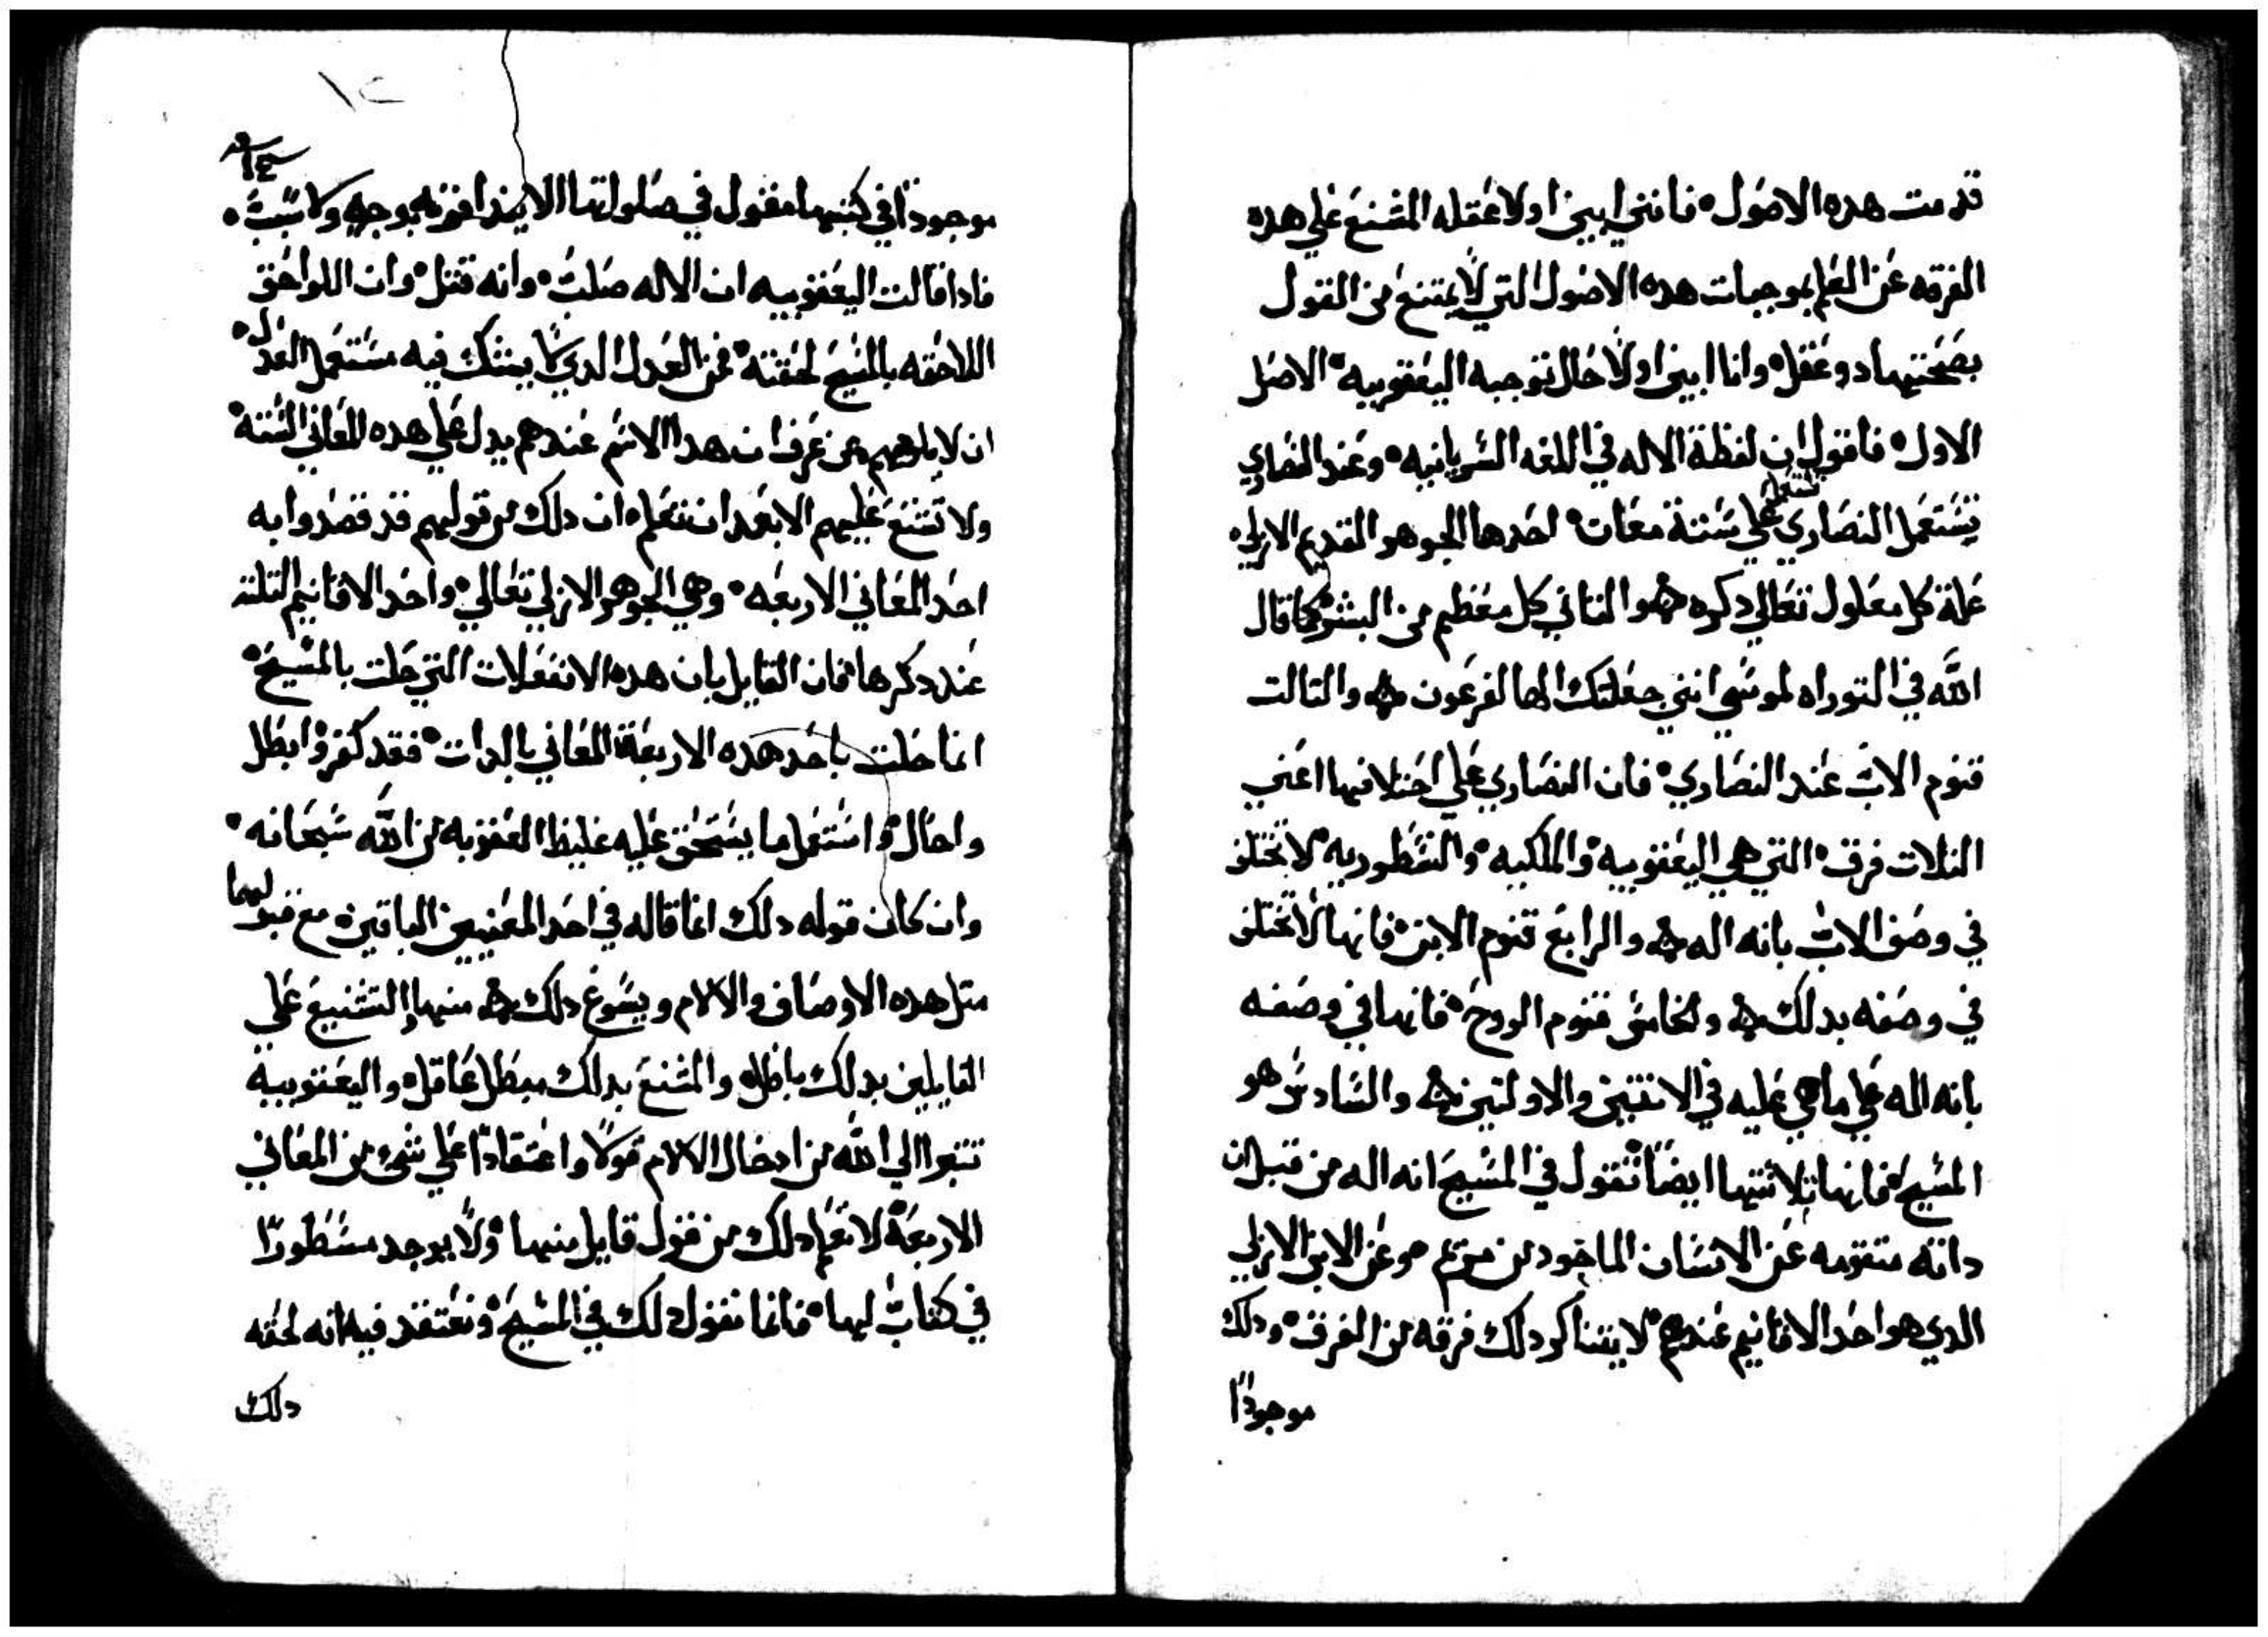 قدمت هده الاصول فانني ابين اولا عقله المشنع علي هده
الفرقه عن العلم بموجبات هده الاصول التي لا يمتنع من القول
بصحتها دو عقل وانا ابين اولا حال توجبه اليعقوبيه الاصل
الاول فاقول ان لفظة الاله في اللغه السريانيه وعند النصاري
تستعمل النصاري علي ستة معان احدها الجوهر القديم الازلي
علة كل معلول تعالي دكره والتاني كل معظم من البشر كما قال
الله في التوراه لموسي انني جعلتك الها لفرعون والتالت
قنوم الاب عند النصاري فان النصاري علي اختلافها اعني
التلات فرق التي هي اليعقوبيه والملكيه والنسطوريه لا تختلف
في وصف الاب بانه اله والرابع قنوم الابن فانها لا تختلف
في وصفه بدلك والخامس قنوم الروح فانها في وصفه
بانه اله علي ما هي عليه في الاتنين والاولتين والسادس هو
المسيح فانها بتلاتتها ايضا تقول في المسيح انه اله من قبل ان
داته متقومه عن الانسان الماخود من مريم وعن الابن الازلي
الدي هو احد الاقانيم عندهم لا يتناكر دلك فرقه من الفرق ودلك
موجودا
١٤
موجودا في كتبها مقول في صلواتها لا يدافونه بوجه ولا سبب
فادا قالت اليعقوبيه ان الاله صلب وانه قتل وان اللواحق
اللاحقه بالمسيح لحقته فمن العدل الدي لا يشك فيه مستعمل العدل
ان لا يلومهم من عرف ان هدا الاسم عندهم يدل علي هده المعاني السته
ولا تشنع عليهم الا بعد ان تعلم ان دلك من قولهم قد قصدوا به
احد المعاني الاربعه وهي الجوهر الازلي تعالي واحد الاقانيم التلته
عند دكرها فان القايل بان هده الانفعلات التي حلت بالمسيح
انما حلت باحد هده الاربعة المعاني بالدات فقد كفر وابطل
واحال واستعمل ما يستحق عليه غليظ العقوبه من الله سبحانه
وان كان قوله دلك انما قاله في احد المعنيين الباقيين مع قبولهما
متل هده الاوصاف والالام ويسوغ دلك منها التشنيع علي
القايلين بدلك باطل والمشنع بدلك مبطل عاقل واليعقوبيه
تتبرا الي الله من ادخال الالام قولا واعتقادا علي شي من المعاني
الاربعة لا نعلم دلك من قول قايل منها ولا يوجد مسطورا
في كتاب لها فانما نقول دلك في المسيح ونعتقد فيه انه لحقه
دلك